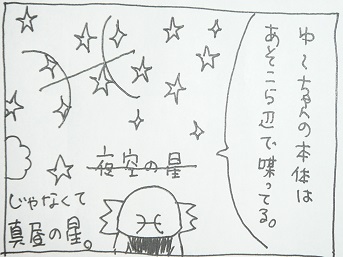 ゆ〜ちゃんの本体は
あそこら辺で喋ってる。
夜空の星
じゃなくて
真昼の星。